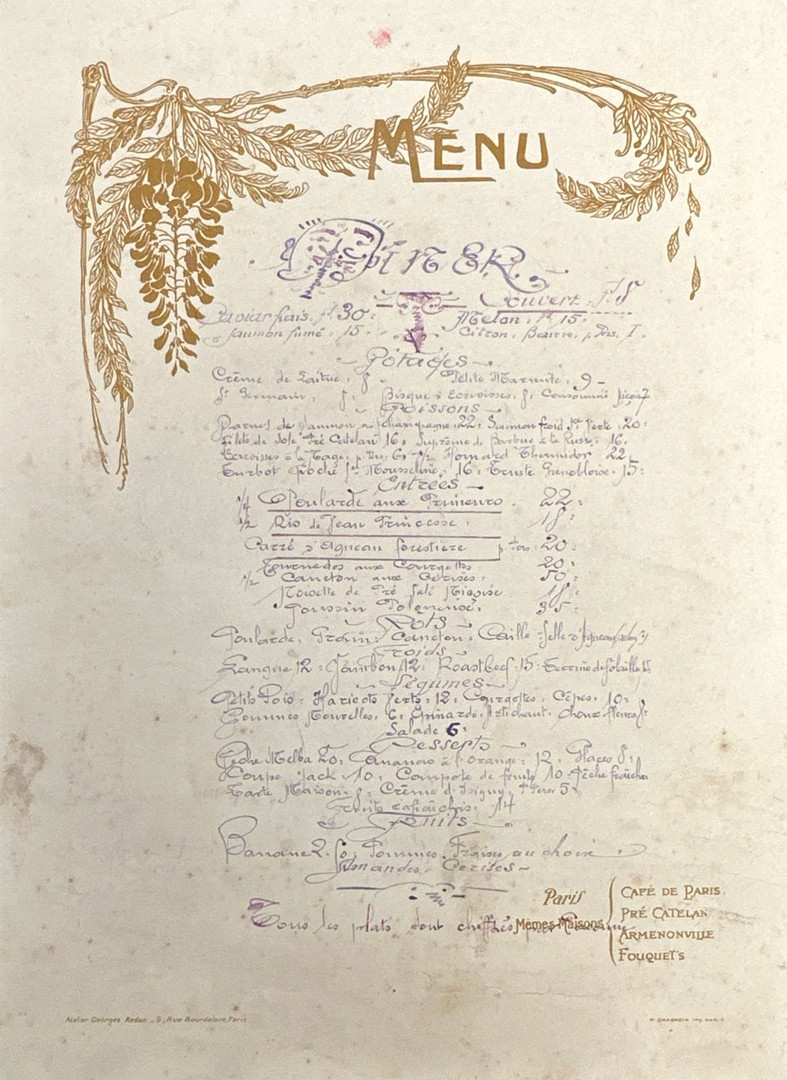 MENU
DÎNER
Couvert: F. 5
Caviar frais, f. 30: Melon, F. 15.
Saumon fumé, 15. Citron, Beurre, p. Pers, 1.
Potages
Crème de Laitue, 8. Petite Marmite, 9-
St Germain, 8. Bisque d'Ecrevisses, 8. Consommé
Poissons
Darnes de Saumon au champagne 22, Saumon froid Sce Verte 20:
Filets de Sole Pré Catelan 16, Suprême de Barbue à la Russe, 16.
Ecrevisses à la Nage, 1/2 Homard Thermidor 22,
Turbot Poché Sce Mousseline, 16, Truite Grenobloise, 15:
Entrées
1/4 Poularde aux Primeurs. 22:
1/2 Ris de Veau Princesse. 18:
Carré d'Agneau forestière p. Pers: 20:
Tournedos aux Courgettes. 20:
1/2 Caneton aux Cerises. 50:
Noisette de Pré Salé Niçoise 18:
Poussin Polonaise. 35:
Rôts
Poularde, Caneton, Caille, Selle d'Agneau
Froids
Langue 12: Jambon 12: Roastbeef: 15: Terrine de Volaille 15
Légumes
Petits Pois, Haricots Verts: 12, Courgettes, Cèpes, 10,
Pommes Nouvelles, 6, Epinards, Artichaut, Choux-fleurs
Salade 6:
Desserts
Pêche Melba 20, Ananas à l'Orange: 12, Glaces 8,
Coupe Jack 10, Compote de fruits 10, Pêche fraîches
Tarte Maison, 8, Crème d'Isigny, 5:
Fruits rafraîchis, 14
Fruits
Banane 2.50, Pommes, Fraises au choix
Amandes, Cerises
Tous les plats dont chiffrés
Paris
Mêmes Maisons
CAFÉ DE PARIS.
PRÉ CATELAN
ARMENONVILLE
FOUQUET'S
Atelier Georges Redon. 5, Rue Bourdaloue, Paris